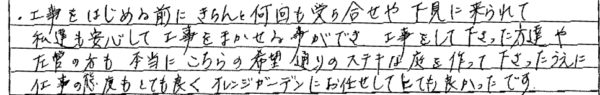 ・工事をはじめる前にきちんと何回も受ち合せや下見に来られて
私達も安心して工事をまかせる事ができ 工事をして下さった方達や
左官の方も本当にこちらの希望通りのステキな庭を作って下さったうえに
仕事の態度もとても良くオレンジガーデンにお任せしてとても良かったです